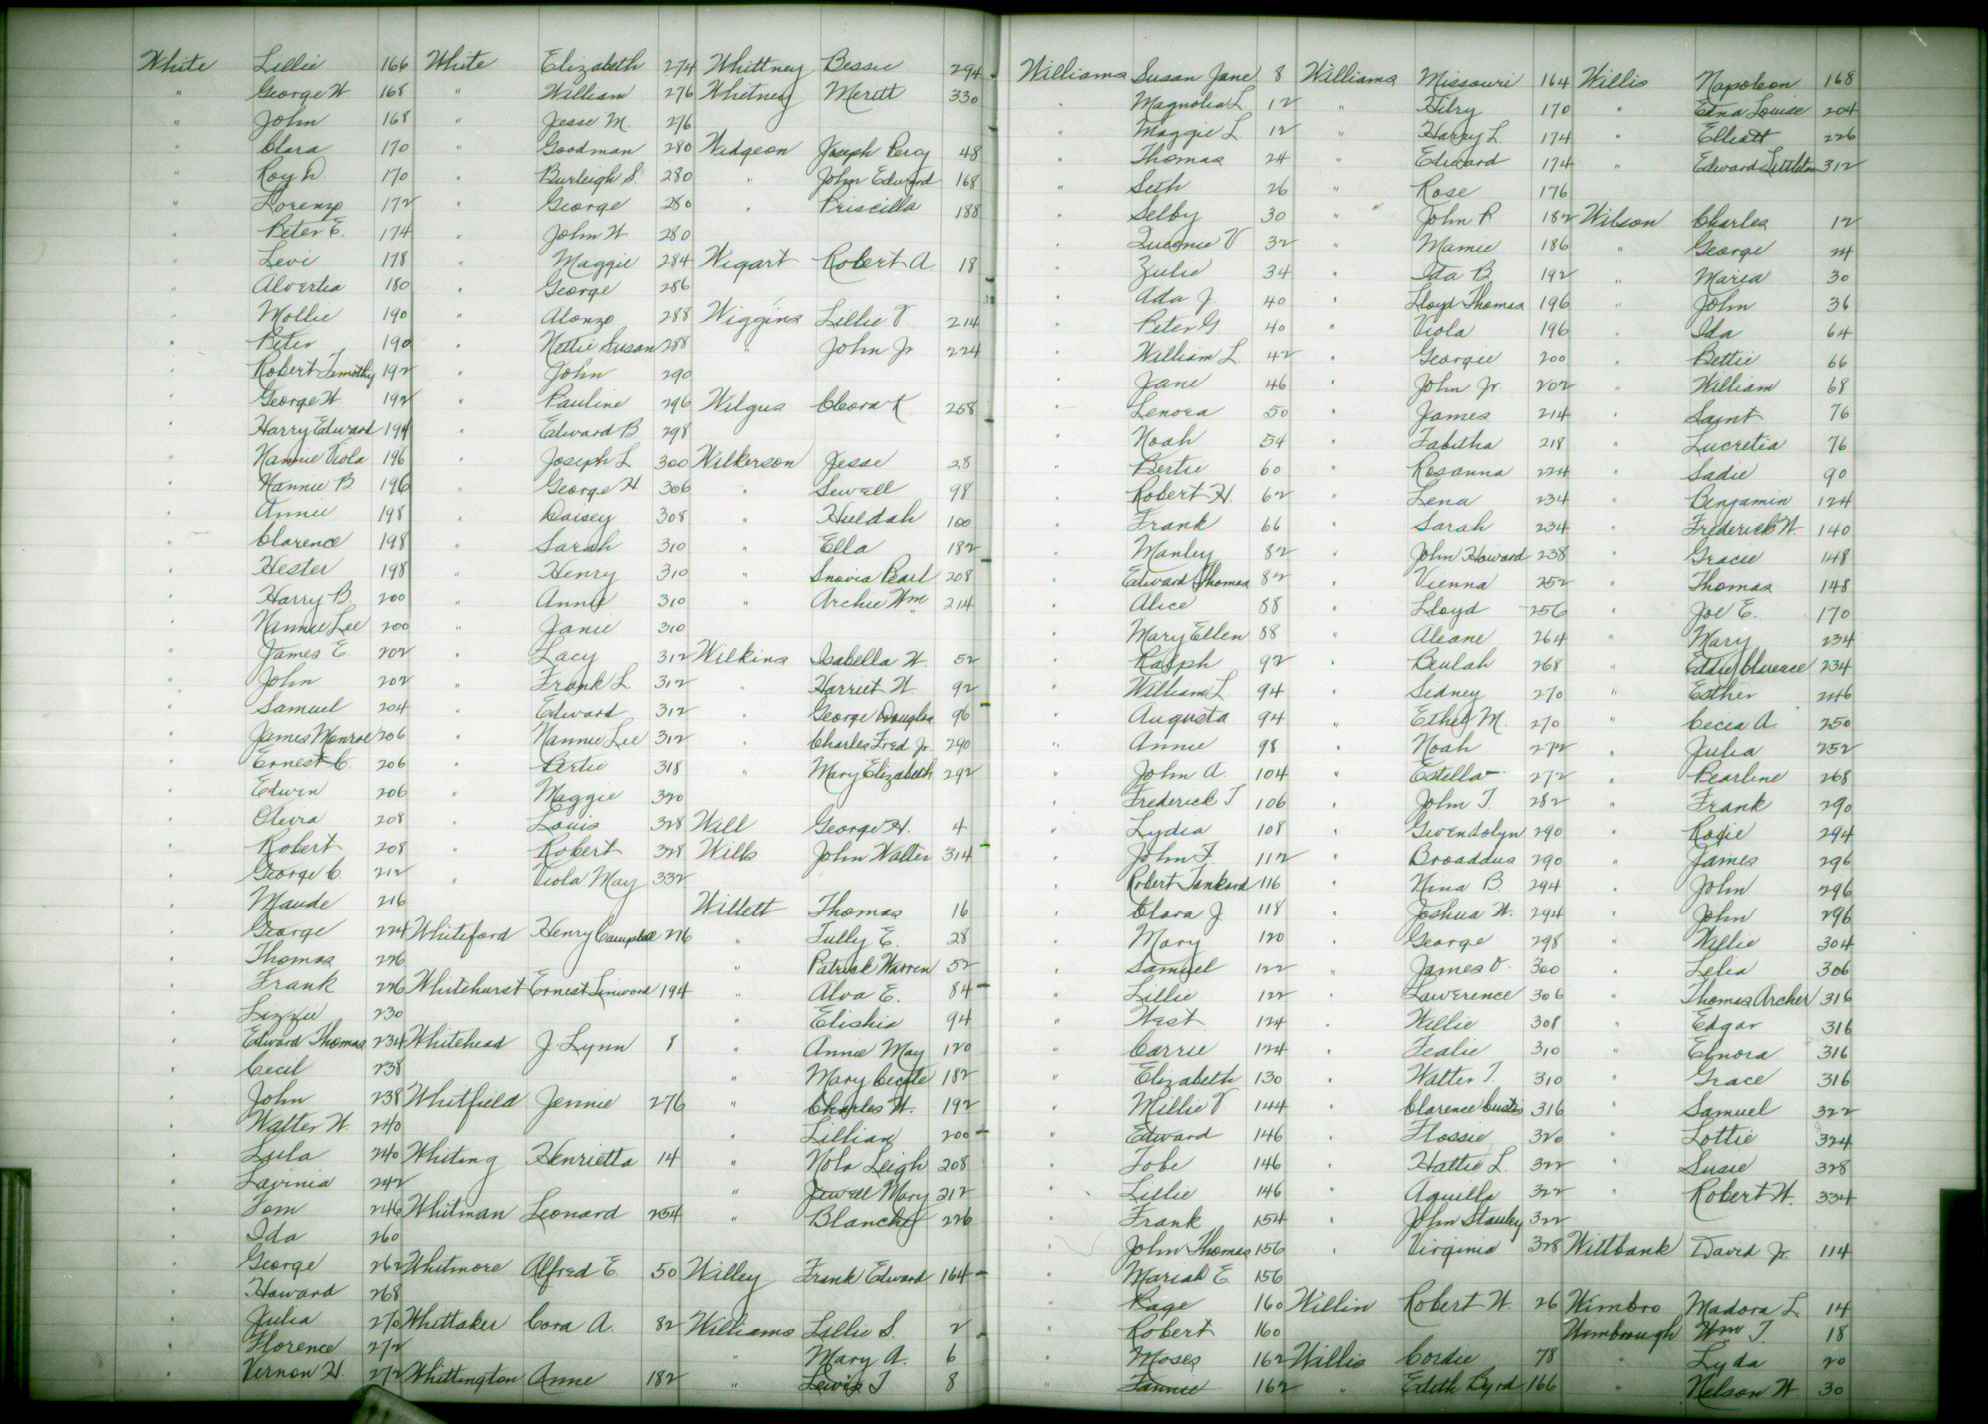 White Lillie 166
" George W. 168
" John 168
" Clara 170
" Roy D. 170
" Lorenzo 172
" Peter E. 174
" Levi 178
" Alvertia 180
" Mollie 190
" Peter 190
" Robert Timothy 192
" George W 192
" Harry Edward 194
" Nannie Viola 196
" Nannie B. 196
" Annie 198
" Clarence 198
" Hester 198
" Harry B. 200
" Nannie Lee 200
" James E 202
" John 202
" Samuel 204
" James Monroe 206
" Ernest C. 206
" Edwin 206
" Olevia 208
" Robert 208
" George C 212
" Maude 216
" George 224
" Thomas 226
" Frank 226
" Lizzie 230
" Edward Thomas 234
" Cecil 238
" John 238
" Walter W. 240
" Lula 240
" Lavinia 242
" Tom 246
" Ida 260
" George 262
" Howard 268
" Julia 270
" Florence 272
" Vernon H. 272
White Elizabeth 274
" William 276
" Jesse M. 276
" Goodman 280
" Burleigh S. 280
" George 280
" John W 280
" Maggie 284
" George 286
" Alonzo 288
" Nettie Susan 288
" John 290
" Pauline 296
" Edward B. 298
" Joseph L 300
" George H. 306
" Daisey 308
" Sarah 310
" Henry 310
" Annie 310
" Janie 310
" Lacy 312
" Frank L. 312
" Edward 312
" Nannie Lee 312
" Bertie 318
" Maggie 320
" Louis 328
" Robert 328
" Viola May 332
Whiteford Henry Campbell 226
Whitehurst Ernest Linwood 194
Whitehead J. Lynn 8
Whitfield Jennie 276
Whiting Henrietta 14
Whitman Leonard 254
Whitmore Alfred E. 50
Whittaker Cora A. 82
Whittington Anne 182
Whittney Bessie 294
Whitney Meritt 330
Widgeon Joseph Percy 48
" John Edward 168
" Priscilla 188
Wigart Robert A. 18
Wiggins Lillie V 214
" John Jr 224
Wilgus Cleora K 258
Wilkerson Jesse 28
" Sewell 98
" Huldah 100
" Ella 182
" Snovia Pearl 208
" Archie Wm 214
Wilkins Isabella W. 52
" Harriet W. 92
" George Douglas 96
" Charles Fred Jr. 290
" Mary Elizabeth 292
Will George H. 4
Wills John Walter 314
Willett Thomas 16
" Tully E. 28
" Patrick Warren 52
" Alva E. 84
" Elishia 94
" Annie May 120
" Mary Cecile 182
" Charles W. 192
" Lillian 200
" Nola Leigh 208
" Jewell Mary 212
" Blanche 226
Willey Frank Edward 164
Williams Lillie S. 2
" Mary A. 6
" Lewis T 8
Williams Susan Jane 8
" Magnolia L. 12
" Maggie L 12
" Thomas 24
" Seth 26
" Selby 30
" Queenie V 32
" Zulie 34
" Ada J. 40
" Peter G. 40
" William L. 42
" Jane 46
" Lenora 50
" Noah 54
" Bertie 60
" Robert H. 62
" Frank 66
" Manley 82
" Edward Thomas 82
" Alice 88
" Mary Ellen 88
" Ralph 92
" William L 94
" Augusta 94
" Annie 98
" John A. 104
" Frederick T 106
" Lydia 108
" John F. 112
" Robert Tankard 116
" Clara J 118
" Mary 120
" Samuel 122
" Lillie 122
" West 124
" Carrie 124
" Elizabeth 130
" Millie V 144
" Edward 146
" Tobe 146
" Lillie 146
" Frank 154
" John Thomas 156
" Mariah E 156
" Page 160
" Robert 160
" Moses 162
" Fannie 162
Williams Missouri 164
" Hilry 170
" Harry L. 174
" Edward 174
" Rose 176
" John R 182
" Mamie 186
" Ida B 192
" Lloyd Thomas 196
" Viola 196
" Georgie 200
" John Jr. 202
" James 214
" Tabitha 218
" Rosanna 224
" Lena 234
" Sarah 234
" John Howard 238
" Vienna 252
" Lloyd 256
" Aleane 264
" Beulah 268
" Sidney 270
" Ethel M. 270
" Noah 272
" Estella 272
" John T. 282
" Gwendolyn 290
" Broaddus 290
" Nina B. 294
" Joshua W. 294
" George 298
" James O. 300
" Lawerence 306
" Willie 308
" Fealie 310
" Walter T. 310
" Clarence Custis 316
" Flossie 320
" Hattie L. 322
" Aquilla 322
" John Stanley 322
" Virginia 328
Willin Robert W. 26
Willis Cordie 78
" Edith Byrd 166
Willis Napoleon 168
" Edna Louise 204
" Elliott 226
" Edward Littleton 312
Wilson Charles 12
" George 24
" Maria 30
" John 36
" Ida 64
" Bettie 66
" William 68
" Saint 76
" Lucretia 76
" Sadie 90
" Benjamin 124
" Frederick W. 140
" Gracie 148
" Thomas 148
" Joe E. 170
" Mary 234
" Eddie Clarence 234
" Esther 246
" Cecia A. 250
" Julia 252
" Pearline 268
" Frank 290
" Rosie 294
" James 296
" John 296
" John 296
" Willie 304
" Lelia 306
" Thomas Archer 316
" Edgar 316
" Elnora 316
" Grace 316
" Samuel 322
" Lottie 324
" Susie 328
" Robert W. 334
Wiltbank David Jr. 114
Wimbro Madora L 14
Wimbrough Wm T. 18
" Lyda 20
" Nelson W 30